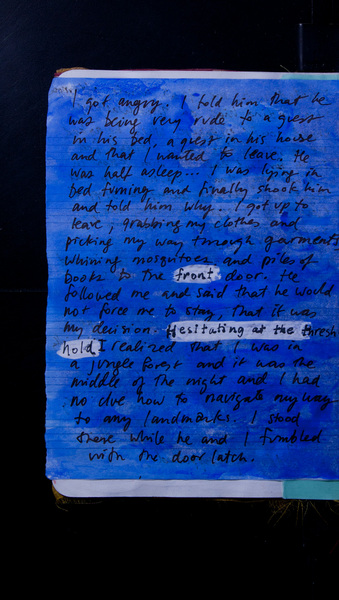 I got angry. I told him that he
was being very rude to a guest
in his bed, a guest in his house
and that I wanted to leave. He
was half asleep... I was lying in
bed fuming and finally shook him
and told him why. I got up to
leave, grabbing my clothes and
picking my way through garments
whining mosquitoes and piles of
books to the front door. He
followed me and said that he would
not force me to stay, that it was
my decision. Hesitating at the thresh
hold I realized that I was in
a jungle forest and it was the
middle of the night and I had
no clue how to navigate my way
to any landmarks. I stood
there while he and I fumbled
with the door latch.